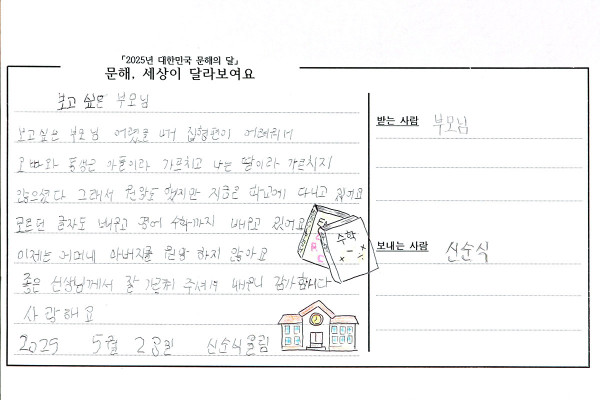 「2025년 대한민국 문해의 달」
문해, 세상이 달라보여요
보고 싶은 부모님
보고싶은 부모님 어렸을 때 집형편이 어려워서
오빠와 동생은 아들이라 가르치고 나는 딸이라 가르치지
않으셨다 그래서 원망도 했지만 지금은 학교에 다니고 있어요
모르던 글자도 배우고 영어 수학까지 배우고 있어요
이제는 어머니 아버지를 원망 하지 않아요
좋은 선생님께서 잘 가르쳐 주셔서 배우니 감사합니다
사랑해요
2025 5월 28일 신순식올림
받는 사람 부모님
보내는 사람 신순식
수학